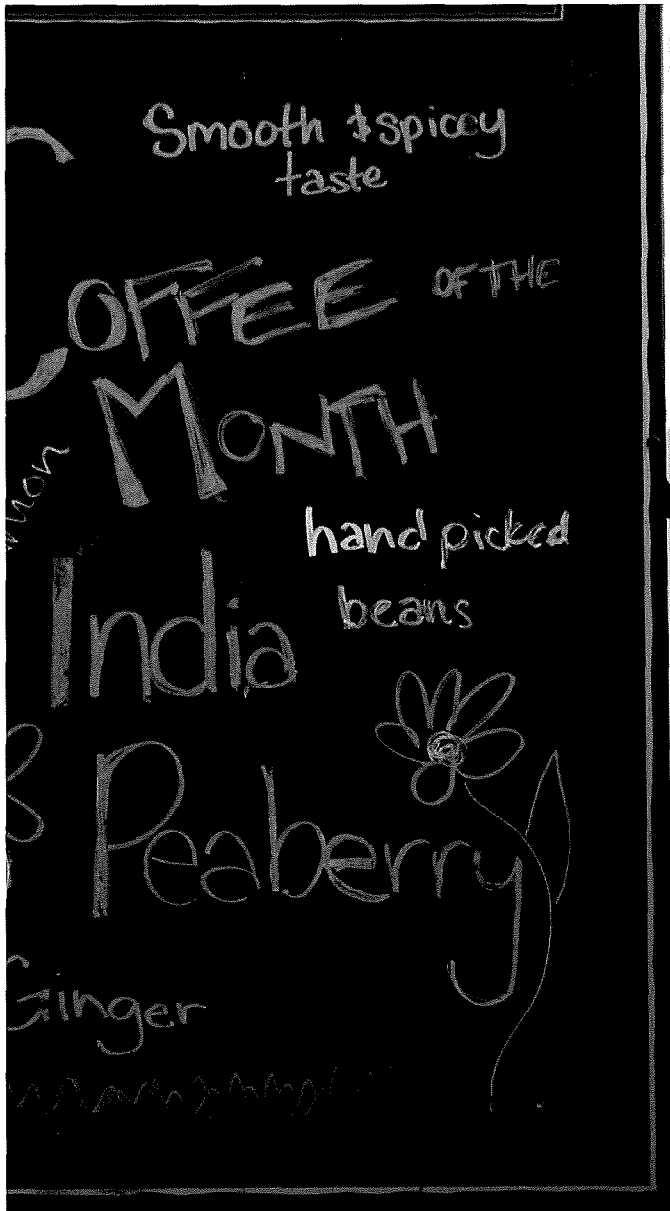 Smooth & spicey
taste
COFFEE OF THE
MONTH
hand picked
beans
India
Peaberry
Ginger